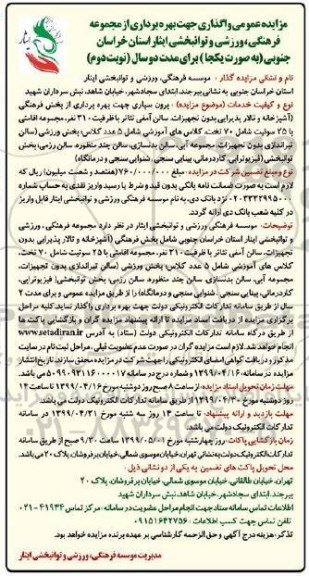 مزایده عمومی واگذاری جهت بهره برداری از مجموعه
فرهنگی، ورزشی و توانبخشی ایثار استان خراسان
جنوبی (به صورت یکجا) برای مدت دو سال (نوبت دوم)
نام و نشانی مزایده گذار: موسسه فرهنگی، ورزشی و توانبخشی ایثار
استان خراسان جنوبی به نشانی بیرجند، ابتدای سجادشهر، خیابان شاهد، نبش سرداران شهید
نوع و کیفیت خدمات (موضوع مزایده): برون سپاری جهت بهره برداری از بخش فرهنگی
(آشپزخانه و تالار پذیرایی بدون تجهیزات، سالن آمفی تئاتر با ظرفیت ۳۱۰ نفر، مجموعه اقامتی
با ۲۵ سوئیت شامل ۷۰ تخت، کلاس های آموزشی شامل ۵ عدد کلاس، بخش ورزشی (سالن
تیراندازی بدون تجهیزات، مجموعه آبی، سالن بدنسازی، سالن چند منظوره، سالن رزمی، بخش
توانبخشی (فیزیوتراپی، کاردرمانی، بینایی سنجی، شنوایی سنجی و درمانگاه)
نوع و مبلغ تضمین شرکت در مزایده: مبلغ ۷۶۰/۰۰۰/۰۰۰ (هفتصد و شصت میلیون) ریال که
لازم است به صورت ضمانت نامه بانکی بدون قید و شرط یا رسید واریز نقدی به حساب شماره
نزد بانک دی، به نام موسسه فرهنگی، ورزشی و توانبخشی ایثار قابل واریز
در کلیه شعب بانک دی ارائه گردد.
توضیحات: موسسه فرهنگی ورزشی و توانبخشی ایثار در نظر دارد مجموعه فرهنگی، ورزشی
و توانبخشی ایثار استان خراسان جنوبی شامل بخش فرهنگی (آشپزخانه و تالار پذیرایی بدون
تجهیزات، سالن آمفی تئاتر با ظرفیت ۳۱۰ نفر، مجموعه اقامتی با ۲۵ سوئیت شامل ۷۰ تخت،
کلاس های آموزشی شامل ۵ عدد کلاس، بخش ورزشی (سالن تیراندازی بدون تجهیزات،
مجموعه آبی، سالن بدنسازی، سالن چند منظوره، سالن رزمی، بخش توانبخشی (فیزیوتراپی،
کاردرمانی، بینایی سنجی، شنوایی سنجی و درمانگاه) را از طریق مزایده عمومی و برای مدت ۲
سال از طریق سامانه تدارکات الکترونیکی دولت جهت بهره برداری واگذار نماید. کلیه مراحل
برگزاری مزایده از دریافت اسناد مزایده تا ارائه پیشنهاد مزایده گران و بازگشایی پاکت ها
از طریق درگاه سامانه تدارکات الکترونیکی دولت (ستاد) به آدرس www.setadiran.ir
انجام خواهد شد. لازم است مزایده گران در صورت عدم عضویت قبلی، مراحل ثبت نام در سایت
مذکور و دریافت گواهی امضای الکترونیکی را جهت شرکت در مزایده محقق سازند. تاریخ انتشار
مزایده در سامانه ۱۳۹۹/۰۴/۱۶ و شماره درج در سامانه می باشد.
مهلت زمان تحویل اسناد مزایده: از ساعت ۸ صبح روز دوشنبه مورخ ۱۳۹۹/۰۴/۱۶ تا ساعت ۱۴
روز دوشنبه مورخ ۱۳۹۹/۰۴/۳۰ از طریق سامانه تدارکات الکترونیک دولت می باشد.
مهلت بازدید و ارائه پیشنهاد: تا ساعت ۱۴ روز سه شنبه مورخ ۱۳۹۹/۰۴/۳۱ در سامانه
تدارکات الکترونیک دولت می باشد.
زمان بازگشایی پاکات: روز چهارشنبه مورخ ۱۳۹۹/۰۵/۰۱ ساعت ۹:۳۰ صبح از طریق سامانه
تدارکات الکترونیک دولت به نشانی تهران، خیابان موسوی شمالی، خیابان بررفروشان، پلاک ۲۰ می باشد.
محل تحویل پاکت های تضمین به یکی از دو نشانی ذیل:
تهران، خیابان طالقانی، خیابان موسوی شمالی، خیابان پلاک ۲۰
بیرجند، ابتدای سجادشهر، خیابان شاهد، نبش سرداران شهید
اطلاعات تماس سامانه ستاد جهت انجام مراحل عضویت در سامانه: مرکز تماس ۴۱۹۳۴-۰۲۱
تلفن تماس جهت کسب اطلاعات: ۰۹۱۵۱۶۴۲۷۵۶
تذکر: هزینه درج آگهی و حق الزحمه کارشناسی بر عهده برنده مزایده خواهد بود.
مدیریت موسسه فرهنگی، ورزشی و توانبخشی ایثار